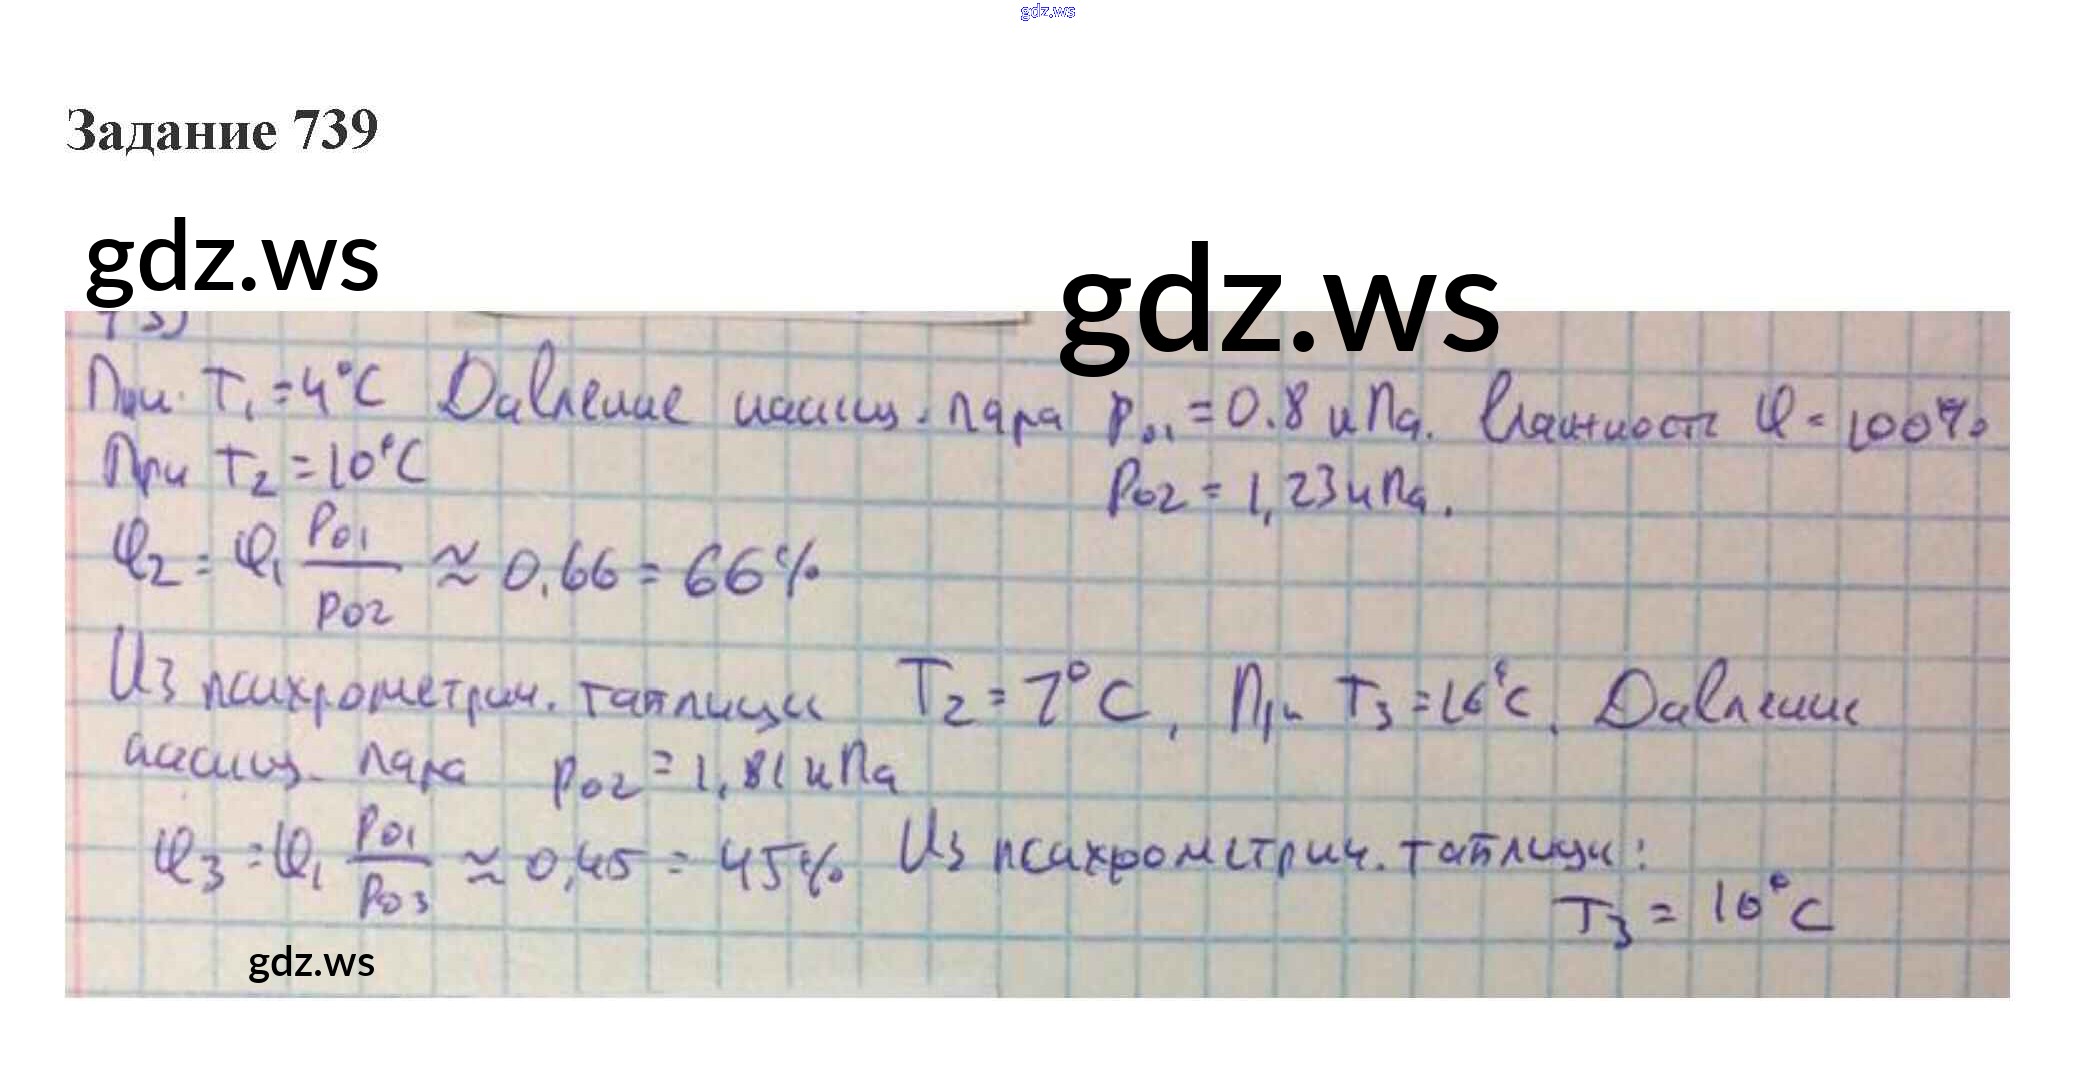 gdz.ws
Задание 739
gdz.ws
gdz.ws
При T₁ = 4°C Давление насыщ. пара p₀₁ = 0.8 кПа. Влажность φ = 100%
При T₂ = 10°C p₀₂ = 1,23 кПа.
φ₂ = φ₁ p₀₁/p₀₂ ≈ 0,66 = 66%
Из психрометрич. таблицы T₂ = 7°C, При T₃ = 16°C. Давление
насыщ. пара p₀₂ = 1,81 кПа
φ₃ = φ₁ p₀₁/p₀₃ ≈ 0,45 = 45% Из психрометрич. таблицы:
T₃ = 10°C
gdz.ws